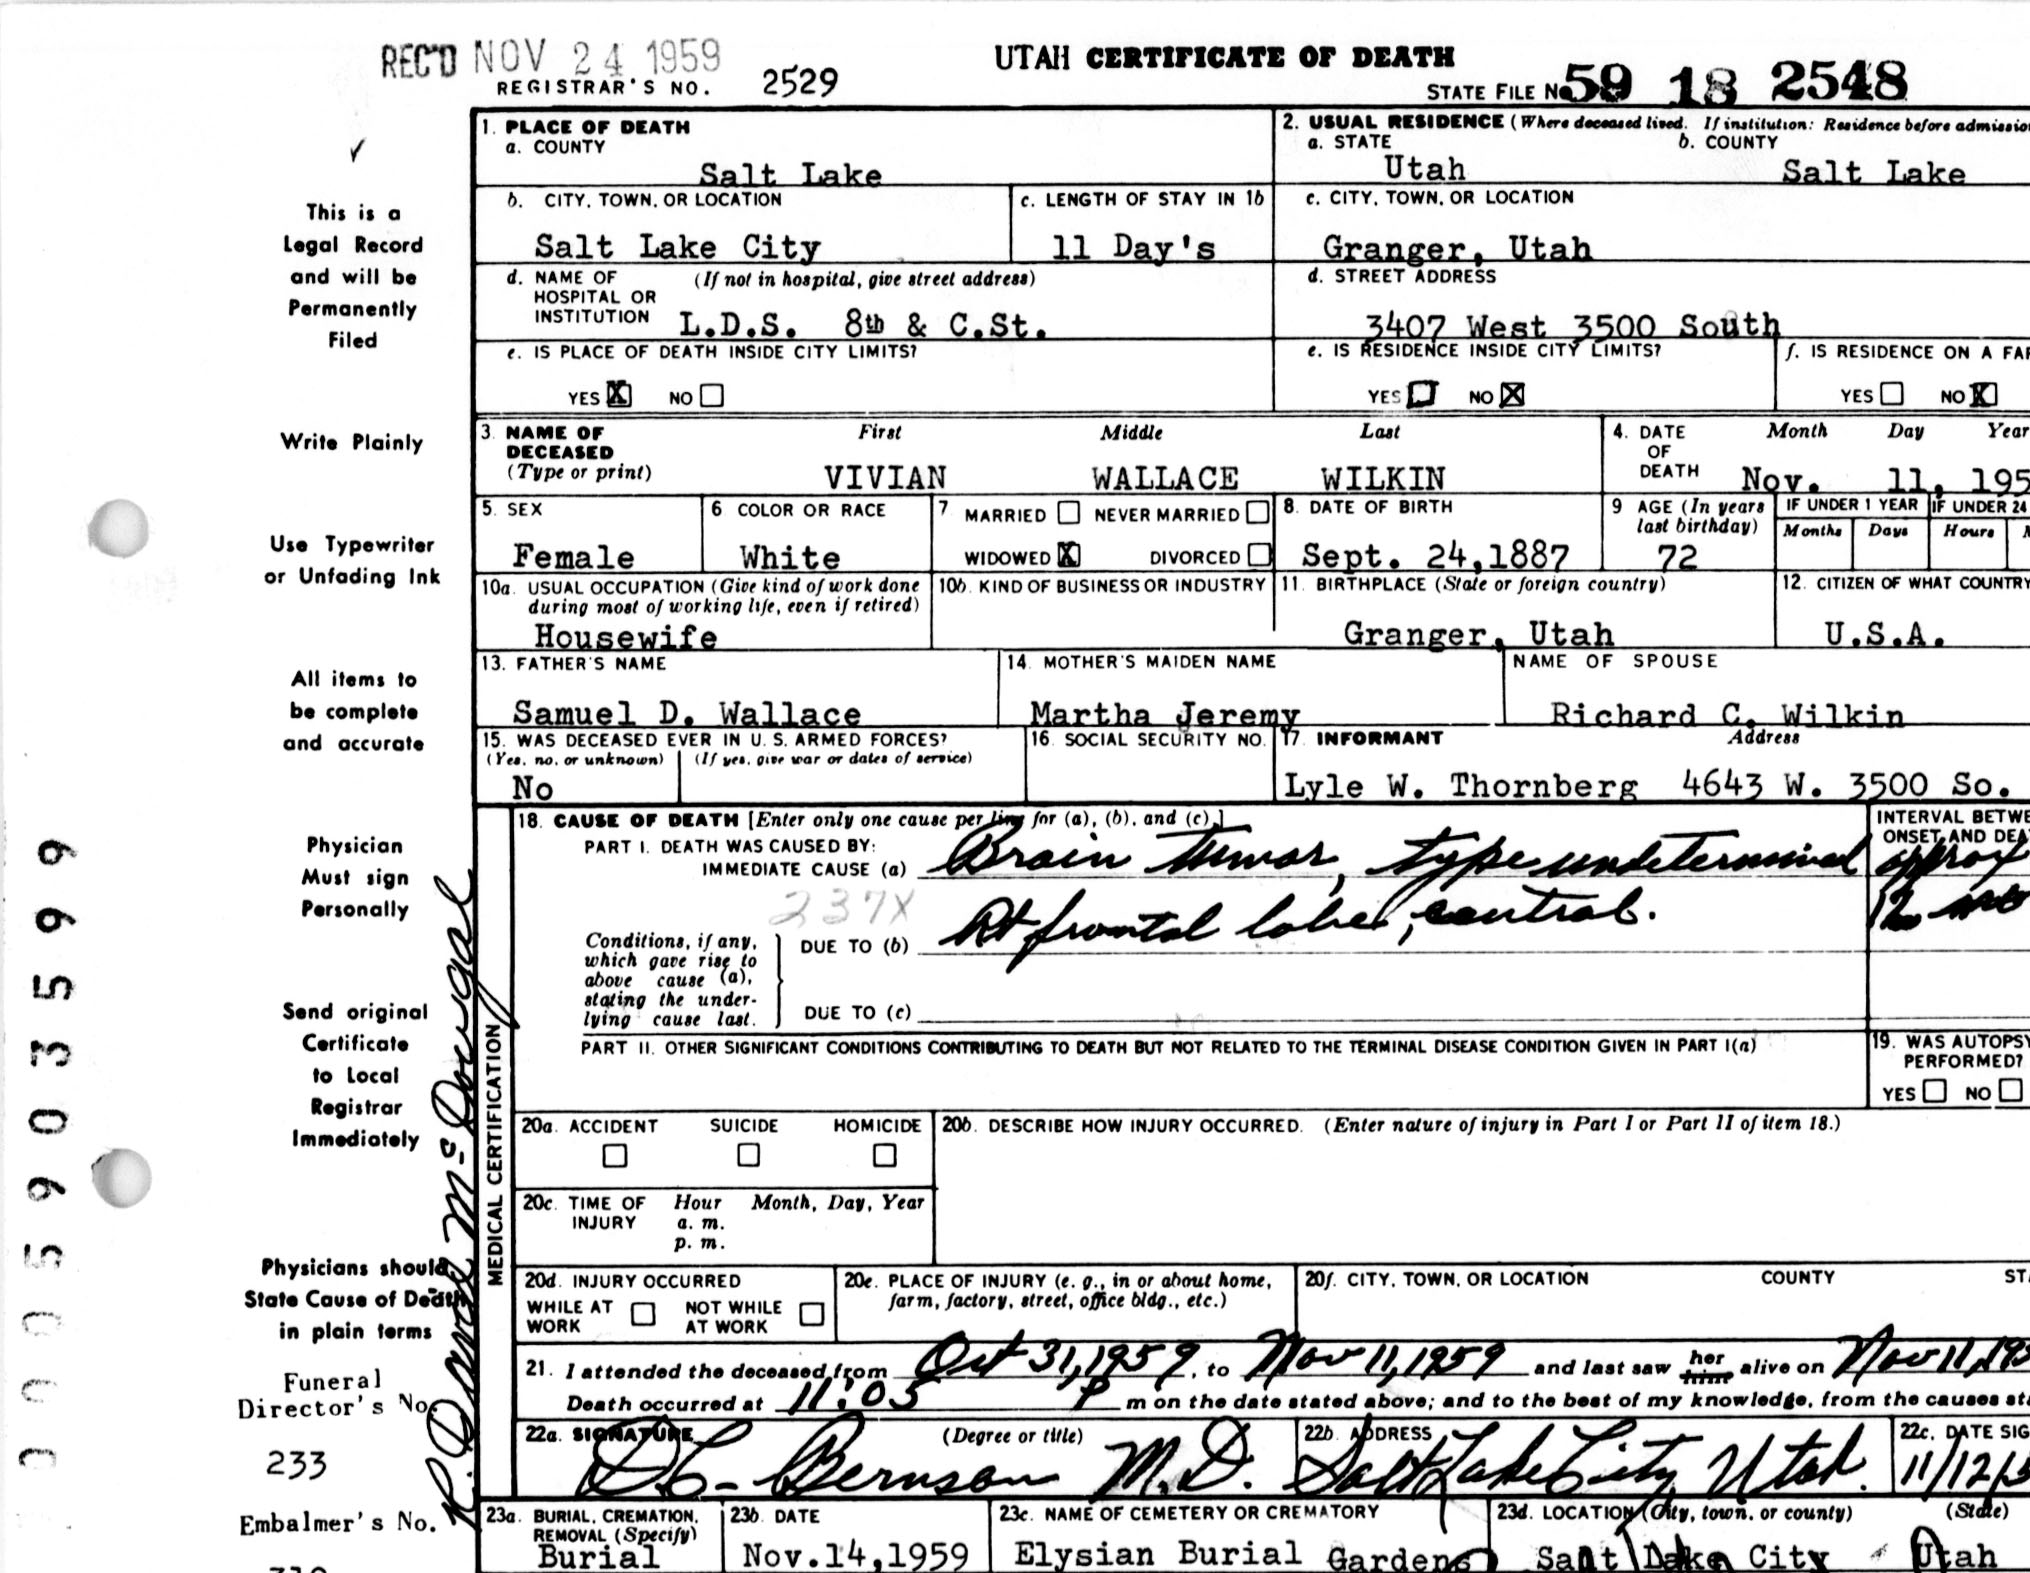 REC'D NOV 24 1959
UTAH CERTIFICATE OF DEATH
REGISTRAR'S NO. 2529
STATE FILE No. 59 18 2548
1. PLACE OF DEATH
a. COUNTY
Salt Lake
2. USUAL RESIDENCE (Where deceased lived. If institution: Residence before admissio
a. STATE b. COUNTY
Utah Salt Lake
b. CITY, TOWN, OR LOCATION
Salt Lake City
c. LENGTH OF STAY IN 1b
11 Day's
c. CITY, TOWN, OR LOCATION
Granger, Utah
d. NAME OF HOSPITAL OR INSTITUTION (If not in hospital, give street address)
L.D.S. 8th & C.St.
d. STREET ADDRESS
3407 West 3500 South
e. IS PLACE OF DEATH INSIDE CITY LIMITS?
YES X NO
e. IS RESIDENCE INSIDE CITY LIMITS?
YES NO X
f. IS RESIDENCE ON A FAR
YES NO X
3. NAME OF DECEASED (Type or print)
First Middle Last
VIVIAN WALLACE WILKIN
4. DATE OF DEATH
Month Day Year
Nov. 11, 195
5. SEX
Female
6 COLOR OR RACE
White
7 MARRIED NEVER MARRIED
WIDOWED X DIVORCED
8. DATE OF BIRTH
Sept. 24,1887
9 AGE (In years last birthday)
72
IF UNDER 1 YEAR IF UNDER 24
Months Days Hours
10a. USUAL OCCUPATION (Give kind of work done
during most of working life, even if retired)
Housewife
10b. KIND OF BUSINESS OR INDUSTRY
11. BIRTHPLACE (State or foreign country)
Granger, Utah
12. CITIZEN OF WHAT COUNTRY
U.S.A.
13. FATHER'S NAME
Samuel D. Wallace
14. MOTHER'S MAIDEN NAME
Martha Jeremy
NAME OF SPOUSE
Richard C. Wilkin
15. WAS DECEASED EVER IN U. S. ARMED FORCES?
(Yes, no, or unknown) (If yes, give war or dates of service)
No
16. SOCIAL SECURITY NO.
17. INFORMANT Address
Lyle W. Thornberg 4643 W. 3500 So.
MEDICAL CERTIFICATION
18. CAUSE OF DEATH [Enter only one cause per line for (a), (b), and (c).]
PART I. DEATH WAS CAUSED BY:
IMMEDIATE CAUSE (a) Brain tumor, type undetermined
INTERVAL BETWE
ONSET AND DEA
approx
12 mo
237X
Rt frontal lobe, central.
Conditions, if any,
which gave rise to
above cause (a),
stating the under-
lying cause last.
DUE TO (b)
DUE TO (c)
PART II. OTHER SIGNIFICANT CONDITIONS CONTRIBUTING TO DEATH BUT NOT RELATED TO THE TERMINAL DISEASE CONDITION GIVEN IN PART I(a)
19. WAS AUTOPSY
PERFORMED?
YES NO
20a. ACCIDENT SUICIDE HOMICIDE
20b. DESCRIBE HOW INJURY OCCURRED. (Enter nature of injury in Part I or Part II of item 18.)
20c. TIME OF INJURY
Hour Month, Day, Year
a. m.
p. m.
20d. INJURY OCCURRED
WHILE AT WORK NOT WHILE AT WORK
20e. PLACE OF INJURY (e. g., in or about home,
farm, factory, street, office bldg., etc.)
20f. CITY, TOWN, OR LOCATION COUNTY ST
21. I attended the deceased from Oct 31, 1959, to Nov 11, 1959 and last saw her him alive on Nov 11, 195
Death occurred at 11:05 P m on the date stated above; and to the best of my knowledge, from the causes sta
22a. SIGNATURE (Degree or title)
DC Bernson M.D.
22b. ADDRESS
Salt Lake City, Utah.
22c. DATE SIG
11/12/5
23a. BURIAL, CREMATION, REMOVAL (Specify)
Burial
23b. DATE
Nov.14,1959
23c. NAME OF CEMETERY OR CREMATORY
Elysian Burial Gardens
23d. LOCATION (City, town, or county) (State)
Salt Lake City Utah
This is a
Legal Record
and will be
Permanently
Filed
Write Plainly
Use Typewriter
or Unfading Ink
All items to
be complete
and accurate
Physician
Must sign
Personally
Send original
Certificate
to Local
Registrar
Immediately
Physicians should
State Cause of Death
in plain terms
Funeral
Director's No.
233
Embalmer's No.
0005903599